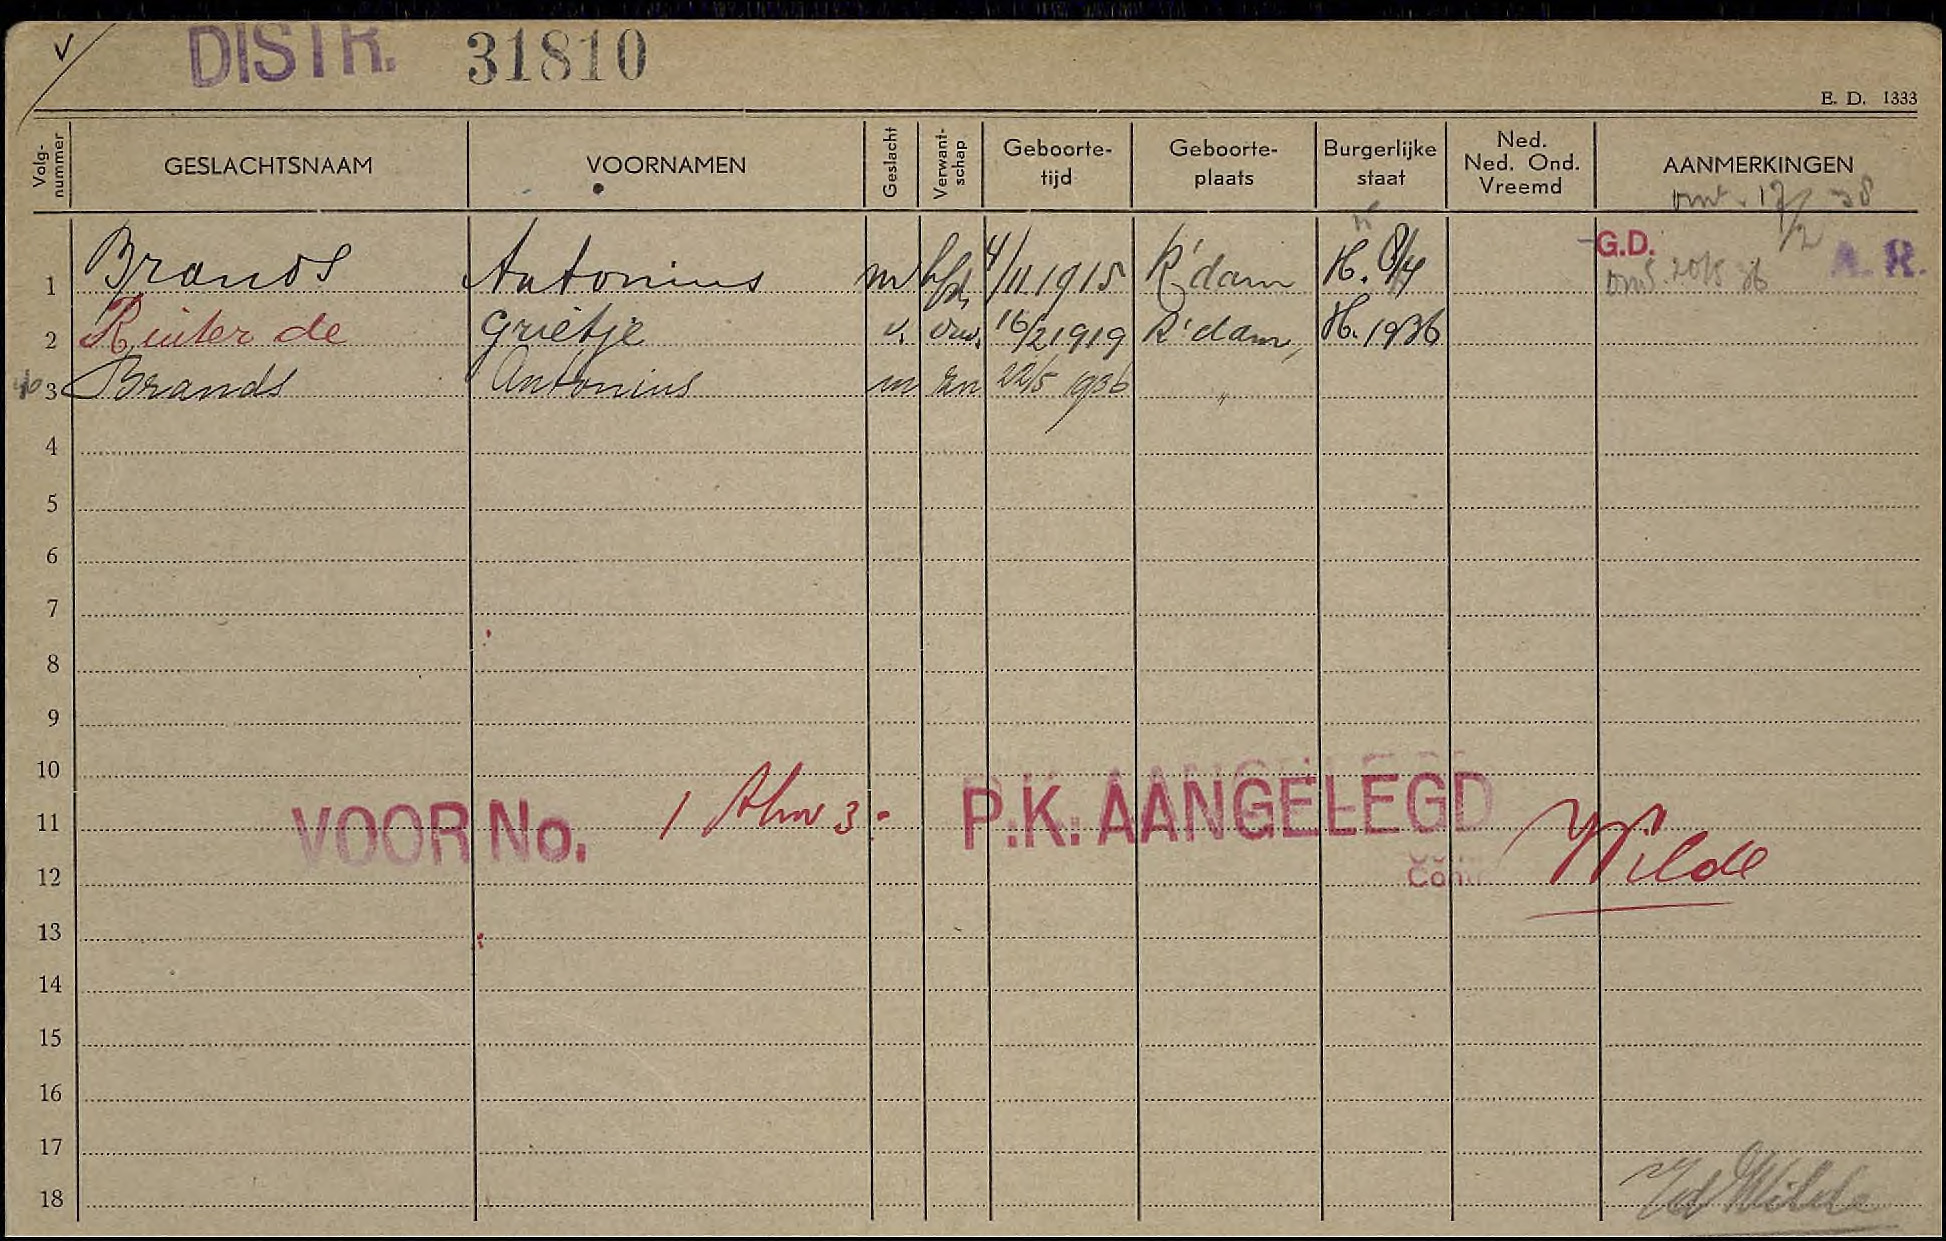 V DISTR. 31810
E. D. 1333
Volg-nummer GESLACHTSNAAM VOORNAMEN Geslacht Verwant-schap Geboorte-tijd Geboorte-plaats Burgerlijke staat Ned. Ned. Ond. Vreemd AANMERKINGEN
G.D. A. R.
1 Brands Antonius m hfd. 4/11 1915 R'dam H. 8/4
2 Ruiter de Grietje v. vrw. 16/2 1919 R'dam, H. 1936
3 Brands Antonius m zn 22/5 1936 "
4
5
6
7
8
9
10
11 VOOR No. 1 t/m 3 P.K. AANGELEGD
12 Wilde
13
14
15
16
17
18 Wilde